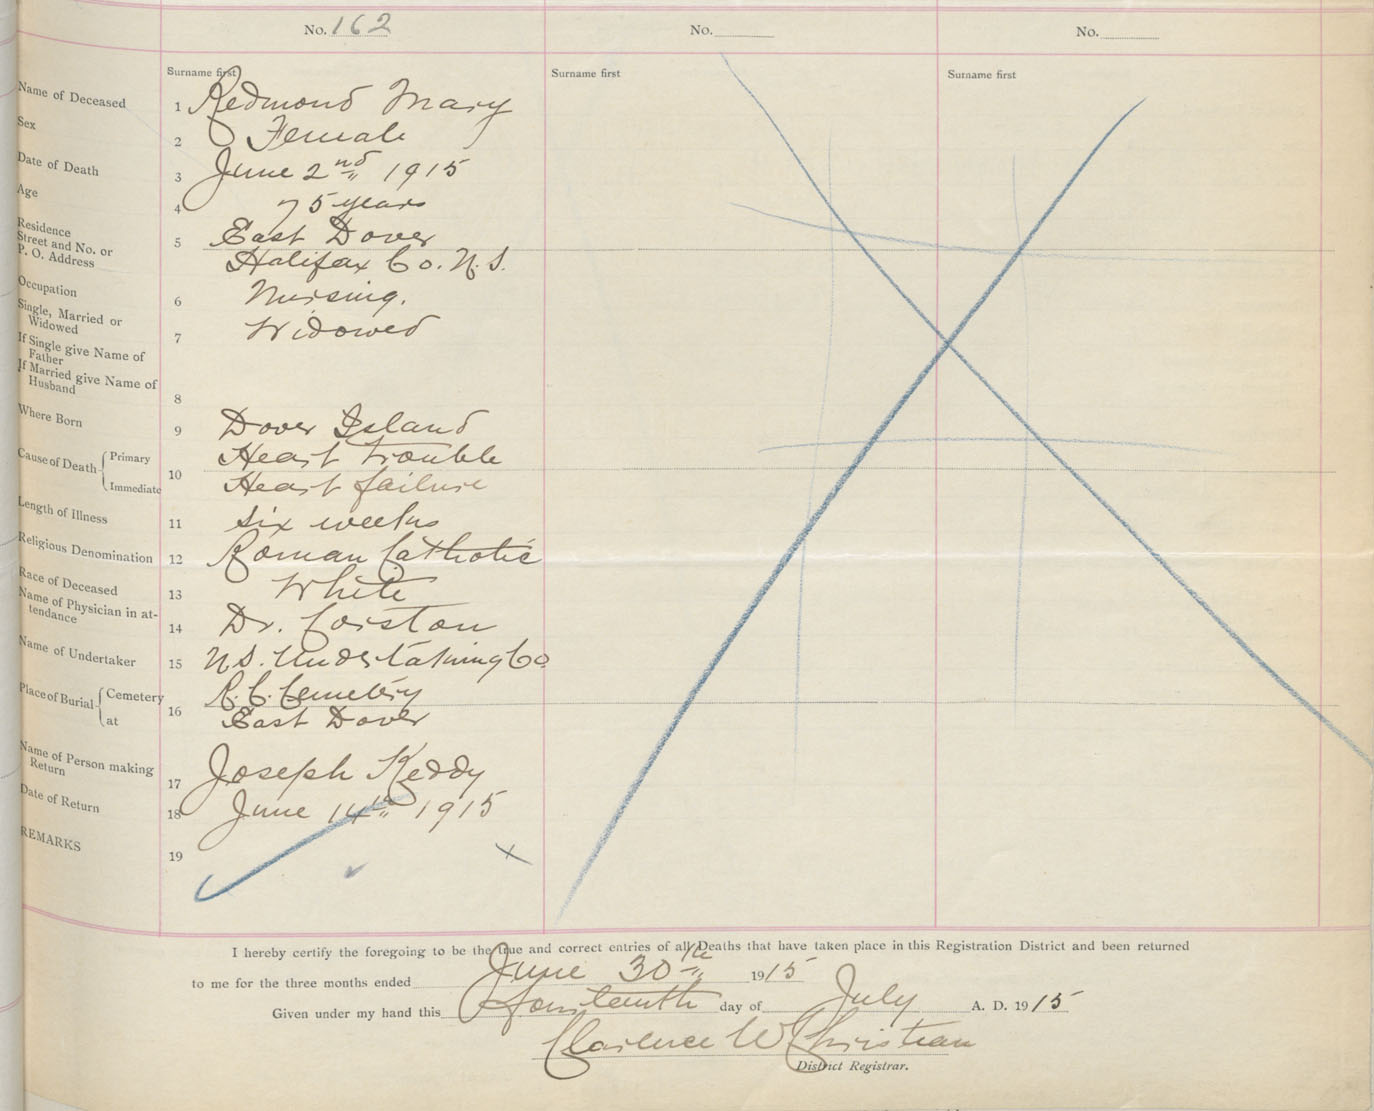 No. 162 No. No.
Surname first Surname first Surname first
Name of Deceased 1 Redmond Mary
Sex 2 Female
Date of Death 3 June 2nd 1915
Age 4 75 years
Residence
Street and No. or
P. O. Address 5 East Dover
Halifax Co. N.S.
Occupation 6 Nursing.
Single, Married or
Widowed 7 Widowed
If Single give Name of
Father
If Married give Name of
Husband 8
Where Born 9 Dover Island
Cause of Death Primary 10 Heart trouble
Immediate Heart failure
Length of Illness 11 Six weeks
Religious Denomination 12 Roman Catholic
Race of Deceased 13 White
Name of Physician in at-
tendance 14 Dr. Corston
Name of Undertaker 15 N.S. Undertaking Co.
Place of Burial Cemetery 16 R.C. Cemetery
at East Dover
Name of Person making
Return 17 Joseph Keddy
Date of Return 18 June 14th 1915
REMARKS 19
I hereby certify the foregoing to be the true and correct entries of all Deaths that have taken place in this Registration District and been returned
to me for the three months ended June 30th 1915
Given under my hand this fourteenth day of July A. D. 1915
Clarence W Christian
District Registrar.